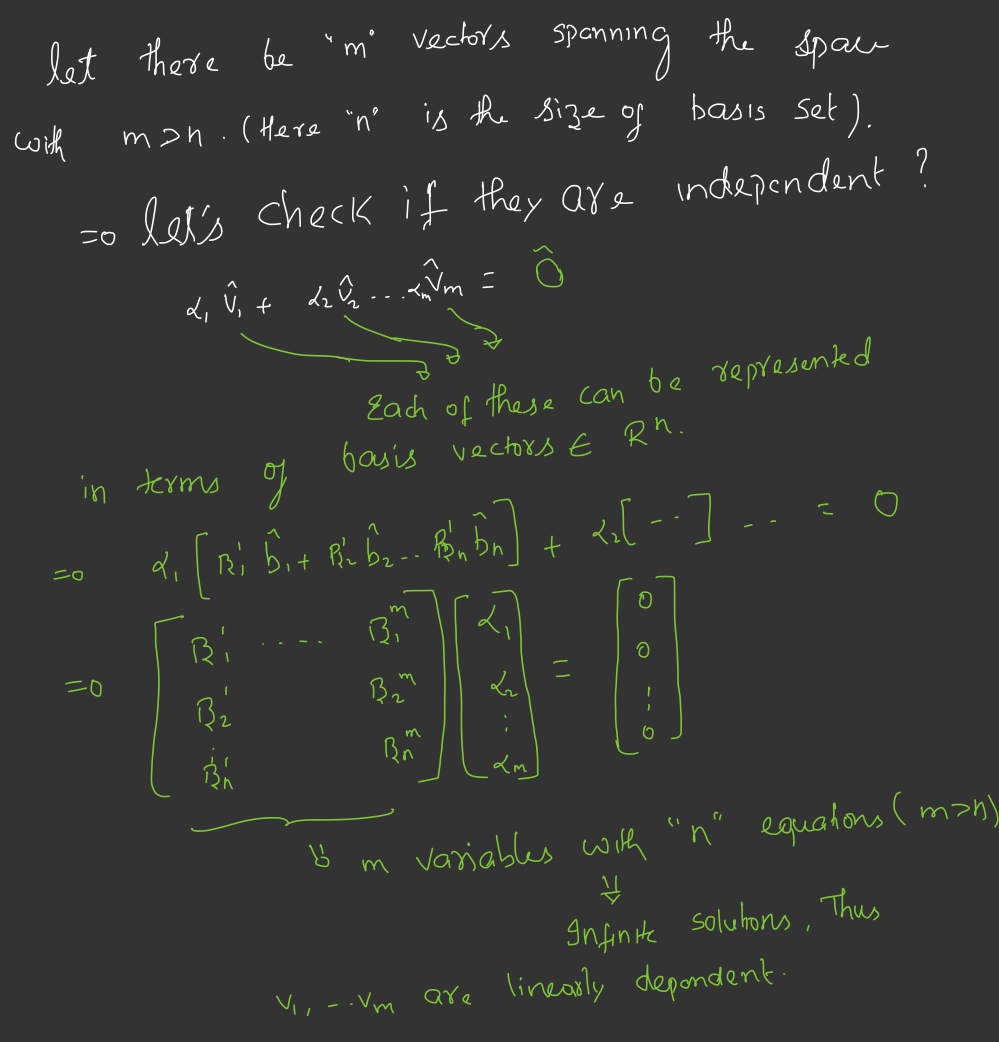 let there be "m" vectors spanning the space
with m>n. (Here "n" is the size of basis set).
⇒ let's check if they are independent ?
α₁ v̂₁ + α₂ v̂₂ ... αₘ v̂ₘ = Ô
Each of these can be represented
in terms of basis vectors ∈ Rⁿ.
⇒ α₁ [B₁¹ b̂₁ + B₂¹ b̂₂ .. Bₙ¹ b̂ₙ] + α₂ [- - ·] - - = 0
⇒ [B₁¹ ..... B₁ᵐ] [α₁] = [0]
[B₂¹ B₂ᵐ] [α₂] [0]
[⋮] [⋮]
[Bₙ¹ Bₙᵐ] [αₘ] [0]
⇓ m variables with "n" equations (m>n)
⇓
Infinite solutions, Thus
v₁, -..vₘ are linearly dependent.